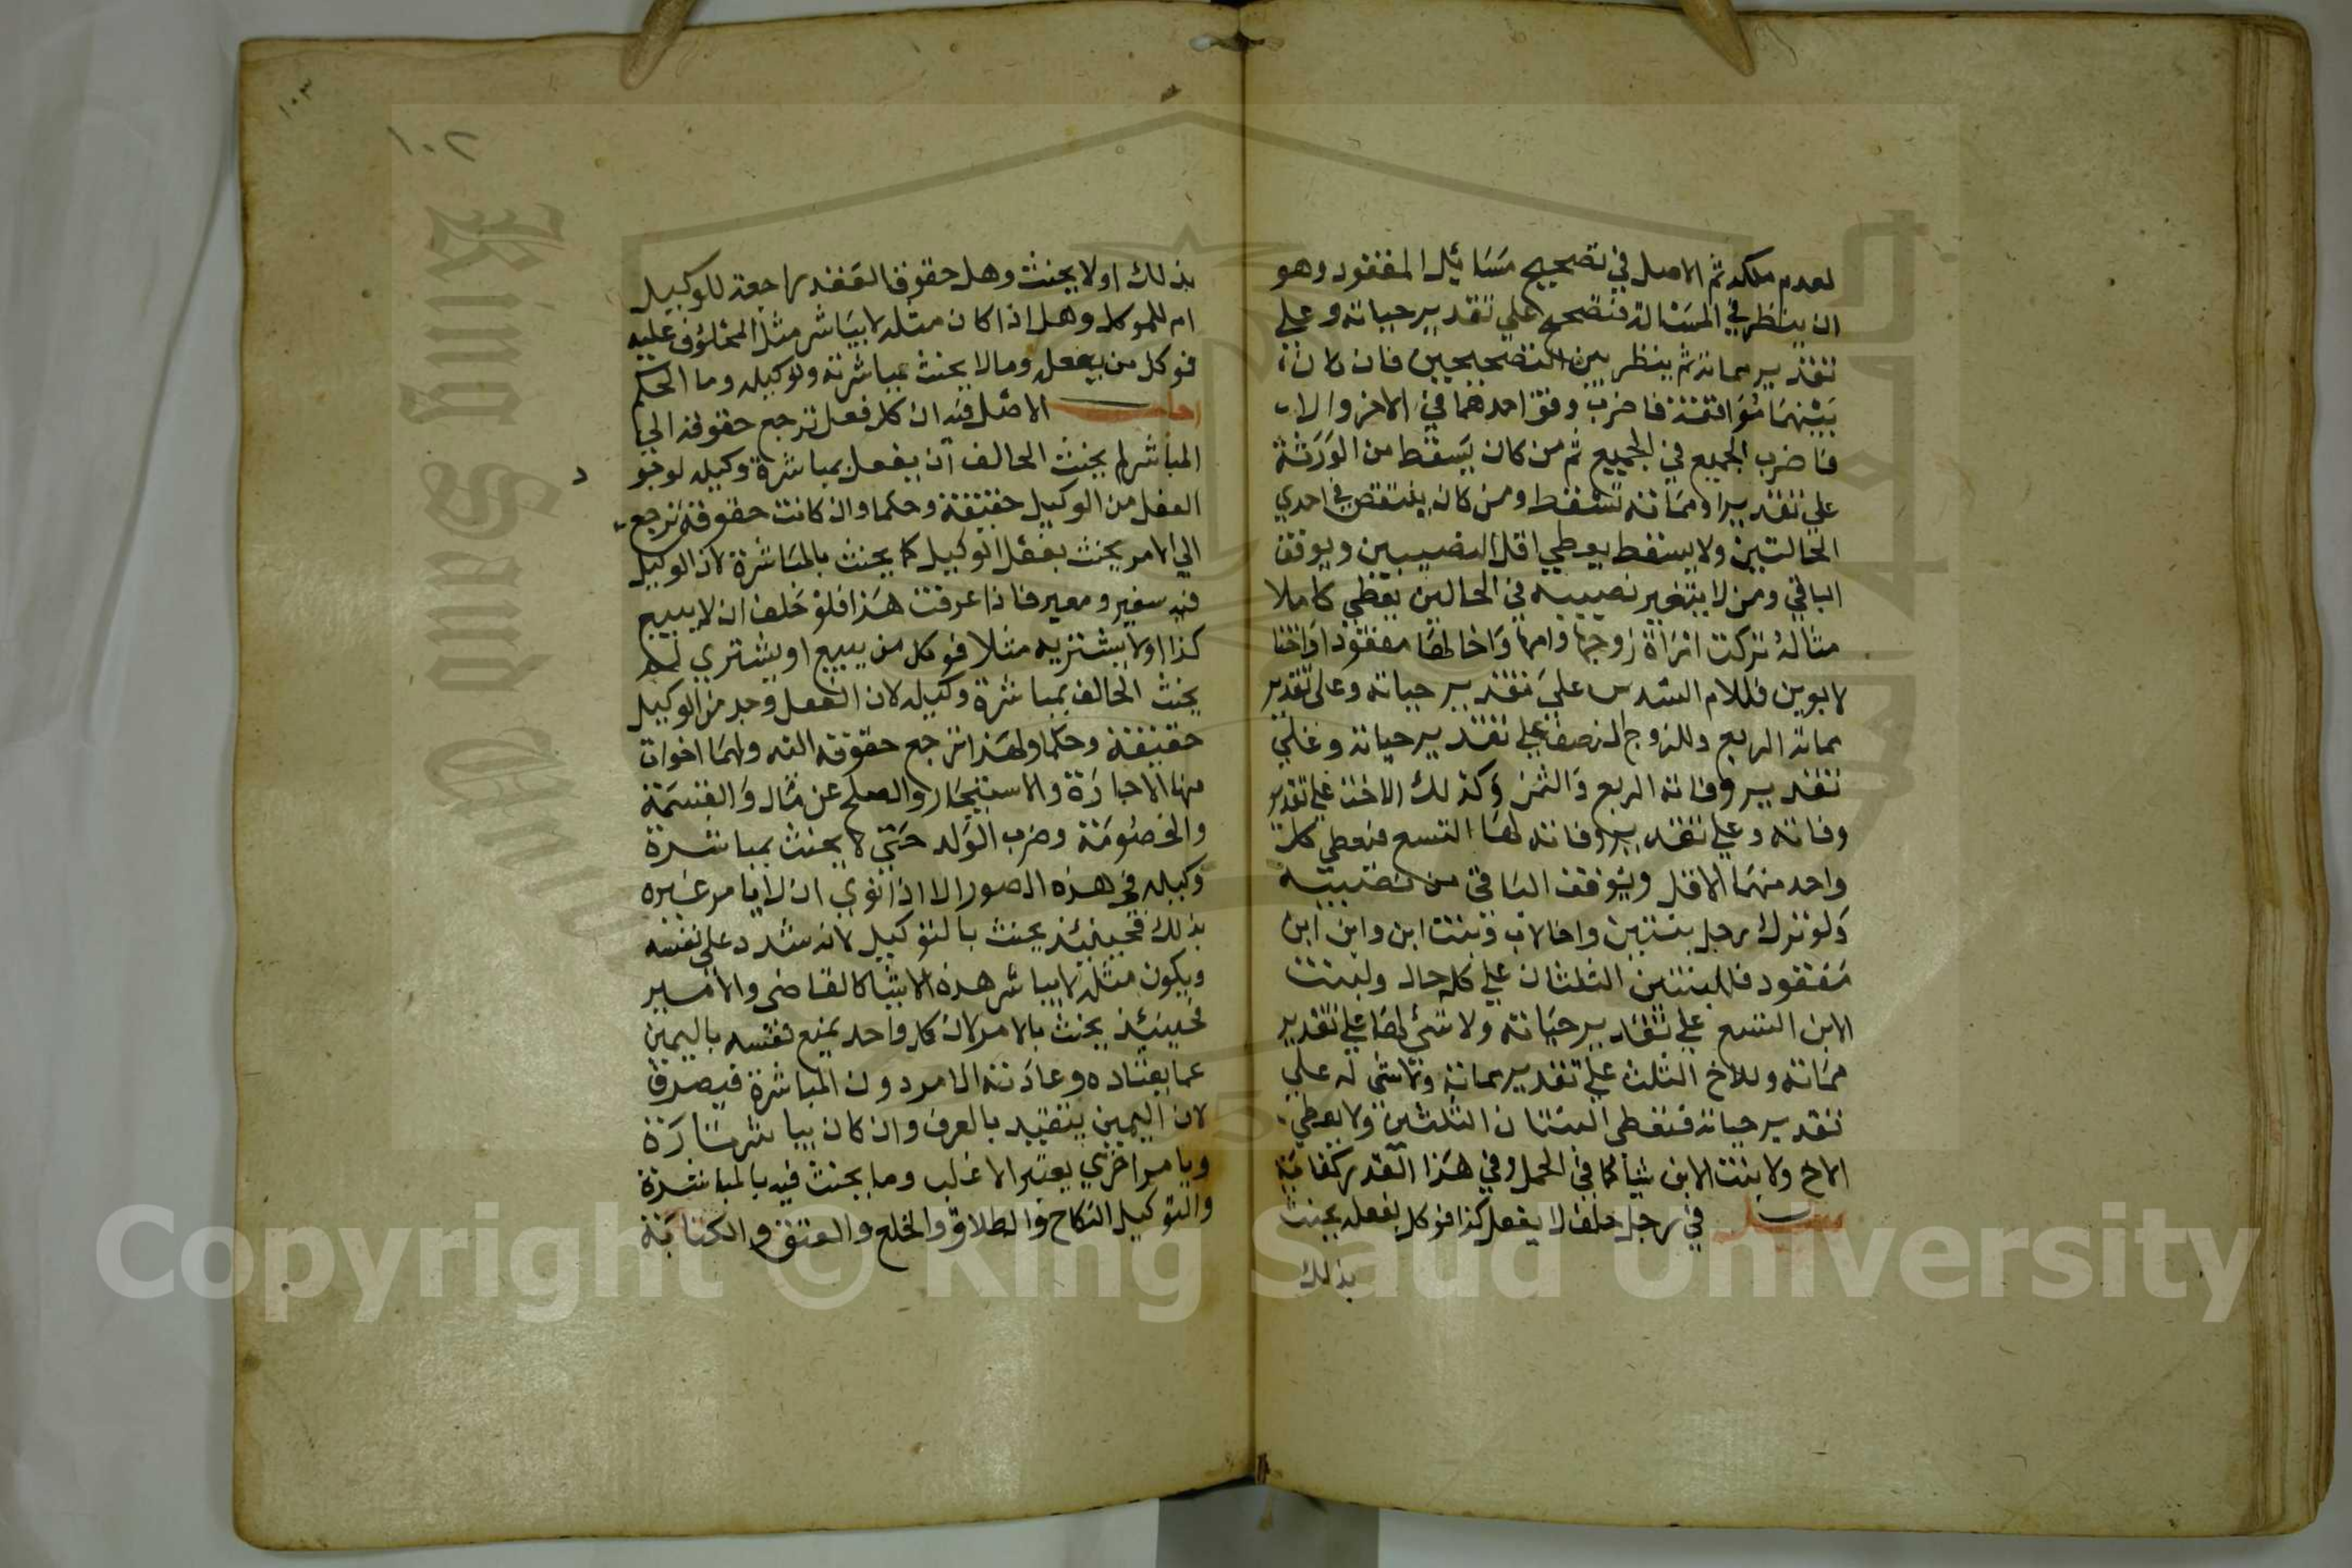 لعدم ملكه ثم الاصل في تصحيح مسائل المفقود وهو
ان ينظر في المسئالة فتصحح علي تقدير حياته وعلي
تقدير مماته ثم ينظر بين التصحيحين فان كان
بينهما موافقة فاضرب وفق احدهما في الاخر والا
فاضرب الجميع في الجميع ثم من كان يسقط من الورثة
علي تقدير او مماته تسقط ومن كان ينتقص في احدي
الحالتين ولا يسقط يعطي اقل النصيبين ويوقف
الباقي ومن لا يتغير نصيبه في الحالين يعطي كاملا
مثاله تركت امراة زوجها وامها واخا لها مفقودا واختا
لابوين فللام السدس علي تقدير حياته وعلي تقدير
مماته الربع وللزوج النصف علي تقدير حياته وعلي
تقدير وفاته الربع والثمن وكذلك الاخت علي تقدير
وفاته وعلي تقدير وفاته لها التسع فيعطي كل
واحد منهما الاقل ويوقف الباقي من نصيبه
ولو ترك رجل بنتين واخا لاب وبنت ابن وابن ابن
مفقود فللبنتين الثلثان علي كل حال ولبنت
الابن التسع علي تقدير حياته ولا شئ لها علي تقدير
مماته وللاخ الثلث علي تقدير مماته ولا شي له علي
تقدير حياته فتعطي البنتان الثلثين ولا يعطي
الاخ ولا بنت الابن شيأ كما في الحمل وفي هذا القدر كفاية
سئل في رجل حلف لا يفعل كذا فوكل بفعله يحنث
بذلك
١٠٣
١٠٢
بذلك اولا يحنث وهل حقوق العقد راجعة للوكيل
ام للموكل وهل اذا كان مثله لا يباشر مثل المحلوف عليه
فوكل من يفعل وما لا يحنث بمباشرته وتوكيله وما الحكم
اجاب الاصل فيه ان كل فعل ترجع حقوقه الي
المباشر لم يحنث الحالف ان يفعل بمباشرة وكيله لوجو
د
الفعل من الوكيل حقيقة وحكما وان كانت حقوقه ترجع
الي الامر يحنث بفعل الوكيل كما يحنث بالمباشرة لان الوكيل
فيه سفير ومعبر فاذا عرفت هذا فلو حلف ان لا يبيع
كذا اولا يشتريه مثلا فوكل من يبيع او يشتري لم
يحنث الحالف بمباشرة وكيله لان الفعل وجد من الوكيل
حقيقة وحكما ولهذا ترجع حقوقه اليه ولهما اخوات
منها الاجارة والاستيجار والصلح عن مال والقسمة
والخصومة وضرب الولد حتي لا يحنث بمباشرة
وكيله في هذه الصور الا اذا نوي ان لا يامر غيره
بذلك فحينيئذ يحنث بالتوكيل لانه شدد علي نفسه
ويكون مثله لا يباشر هذه الاشيا كالقاضي والامير
فحينيئذ يحنث بالامر لان كل واحد يمنع نفسه باليمين
عما يعتاده وعادته الامر دون المباشرة فيصدق
لان اليمين يتقيد بالعرف وان كان يباشر مرة
ويامر اخري يعتبر الاغلب وما يحنث فيه بالمباشرة
والتوكيل النكاح والطلاق والخلع والعتق والكتابة
King Saud University
Copyright © King Saud University